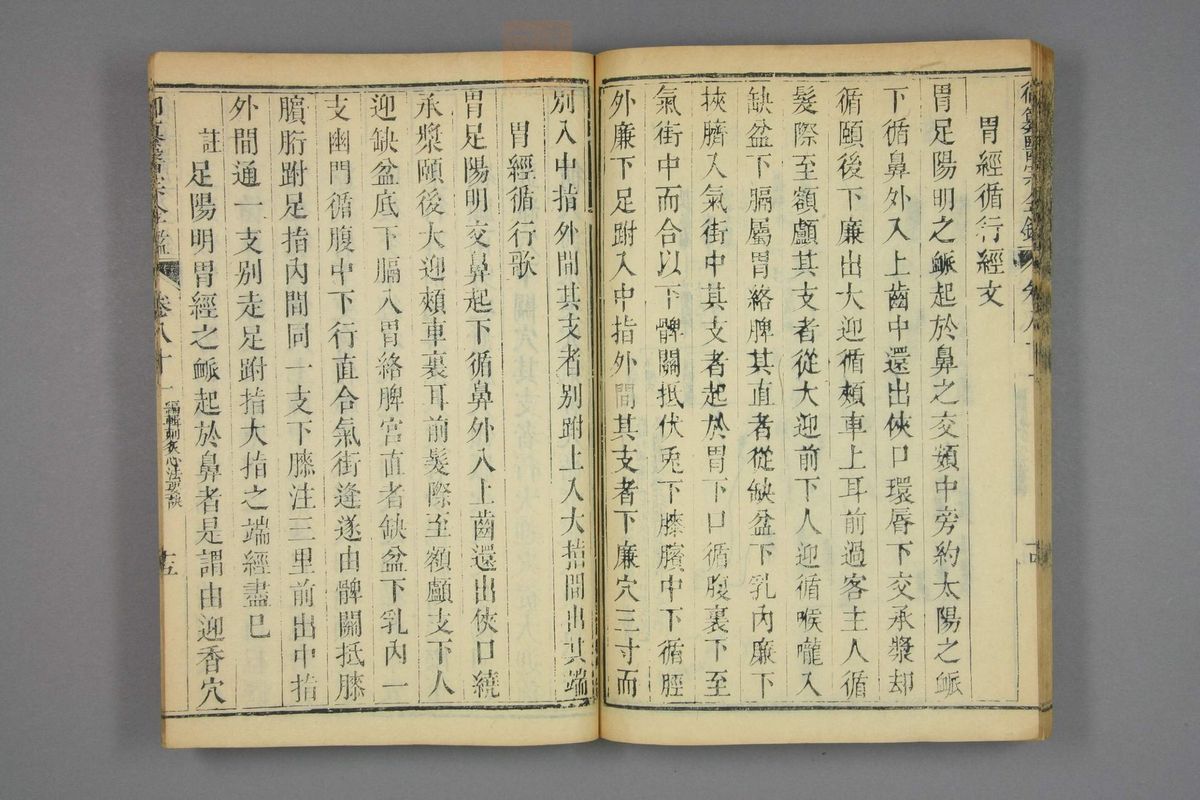 胃經循行經文
胃足陽明之䘑起於鼻之交頞中旁約太陽之䘑
下循鼻外入上齒中還出俠口環唇下交承漿却
循頤後下廉出大迎循頰車上耳前過客主人循
髮際至額顱其支者從大迎前下人迎循喉嚨入
缺盆下膈屬胃絡脾其直者從缺盆下乳內廉下
挾臍入氣街中其支者起於胃下口循腹裏下至
氣街中而合以下髀關抵伏兎下膝臏中下循脛
外廉下足跗入中指外間其支者下廉穴三寸而
別入中指外間其支者別跗上入大指間出其端
胃經循行歌
胃足陽明交鼻起下循鼻外入上齒還出俠口繞
承漿頤後大迎頰車裏耳前髮際至額顱支下人
迎缺盆底下膈入胃絡脾宮直者缺盆下乳內一
支幽門循腹中下行直合氣街逢遂由髀關抵膝
臏胻跗足指內間同一支下膝注三里前出中指
外間通一支別走足跗指大指之端經盡巳
註
足陽明胃經之䘑起於鼻者是謂由迎香穴
卷八十一
編輯刺灸心法要訣